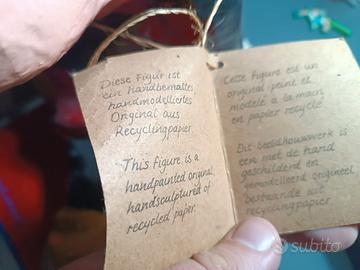 Diese Figur ist
ein handbemaltes
handmodelliertes
Original aus
Recyclingpapier.
This figure is a
handpainted original,
handsculptured of
recycled paper.
Cette figure est un
original peint et
modelé a la main
en papier recyclé.
Dit beeldhouwwerk is
een met de hand
geschilderd en
gemodelleerd origineel
bestaande uit
recyclingpapier.
subito